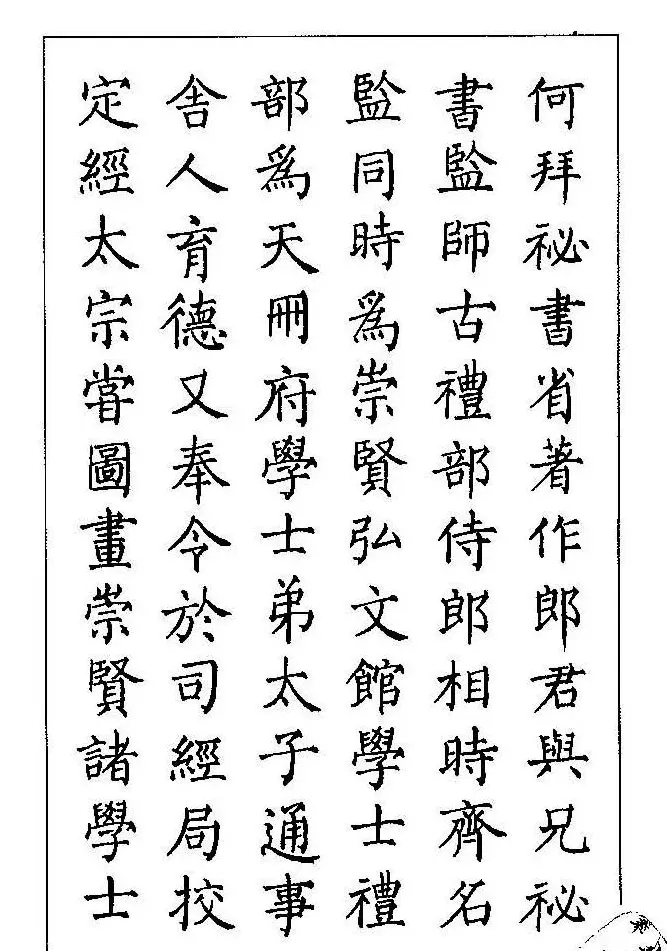 何拜祕書省著作郎君與兄祕
書監師古禮部侍郎相時齊名
監同時爲崇賢弘文館學士禮
部爲天冊府學士弟太子通事
舎人育德又奉令於司經局挍
定經太宗甞圖畫崇賢諸學士